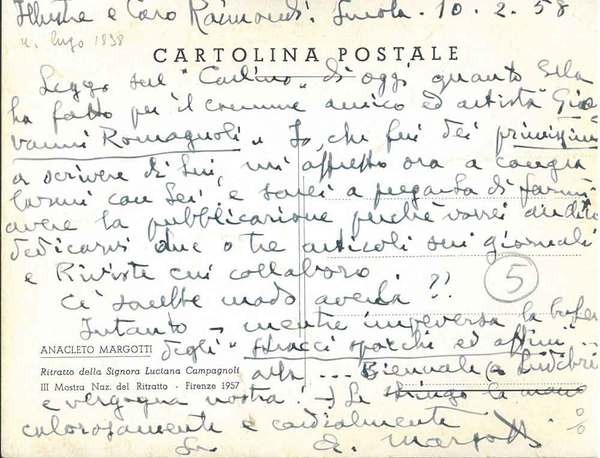 Illustre e Caro Raimondi. Imola. 10. 2. 58
n. lugo 1898
CARTOLINA POSTALE
Leggo sul "Carlino" di oggi quanto Ella
ha fatto per il comune amico ed artista Gio
vanni Romagnoli". Io, che fui dei primissimi
a scrivere di Lui, mi affretto ora a congra
tularmi con Lei e sarei a pregarla di farmi
avere la pubblicazione perché vorrei
dedicarvi due o tre articoli sui giornali
e Riviste cui collaboro
Ci sarebbe modo averla?!
5
Intanto - mentre imperversa la
ANACLETO MARGOTTI
degli "stracci sporchi ed affini"...
Ritratto della Signora Luciana Campagnoli
alla ... Biennale (a
III Mostra Naz. del Ritratto - Firenze 1957
e vergogna nostra!) Le stringo la mano
calorosamente e cordialmente
A. Margotti